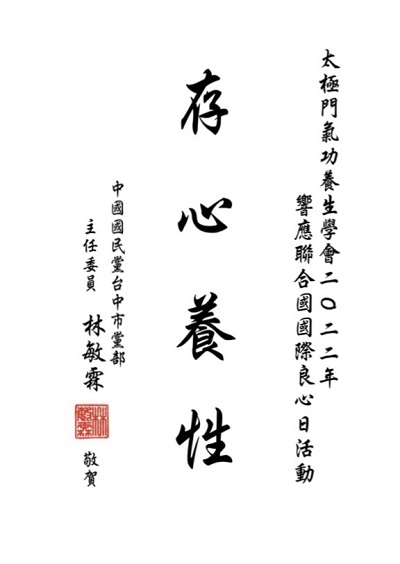 太極門氣功養生學會二〇二二年
響應聯合國國際良心日活動
存心養性
中國國民黨台中市黨部
主任委員 林敏霖 敬賀
林敏霖